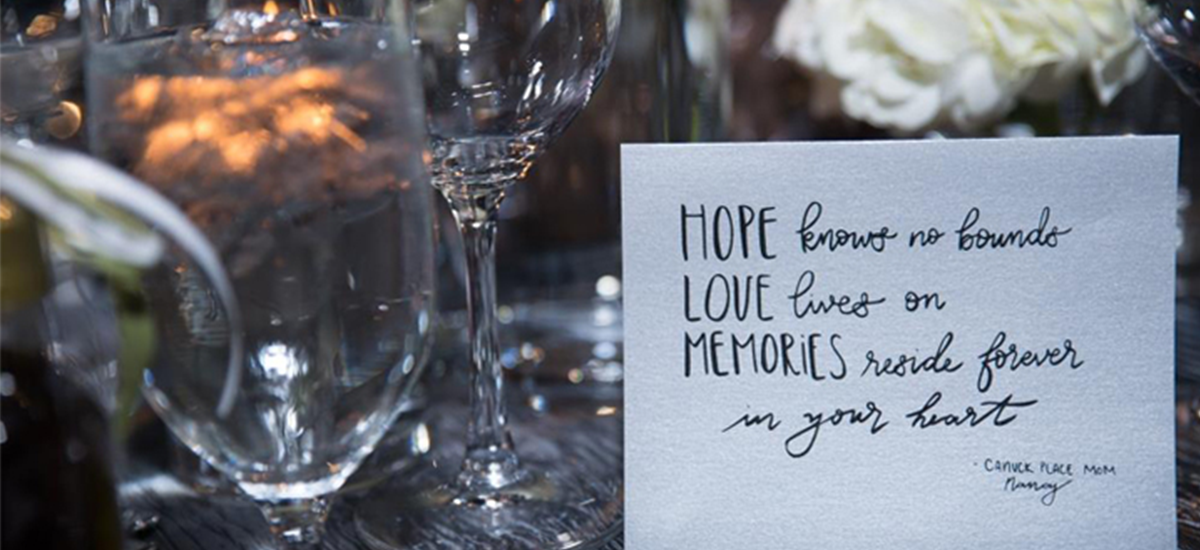 HOPE knows no bounds
LOVE lives on
MEMORIES reside forever
in your heart
- CANUCK PLACE MOM
Nancy